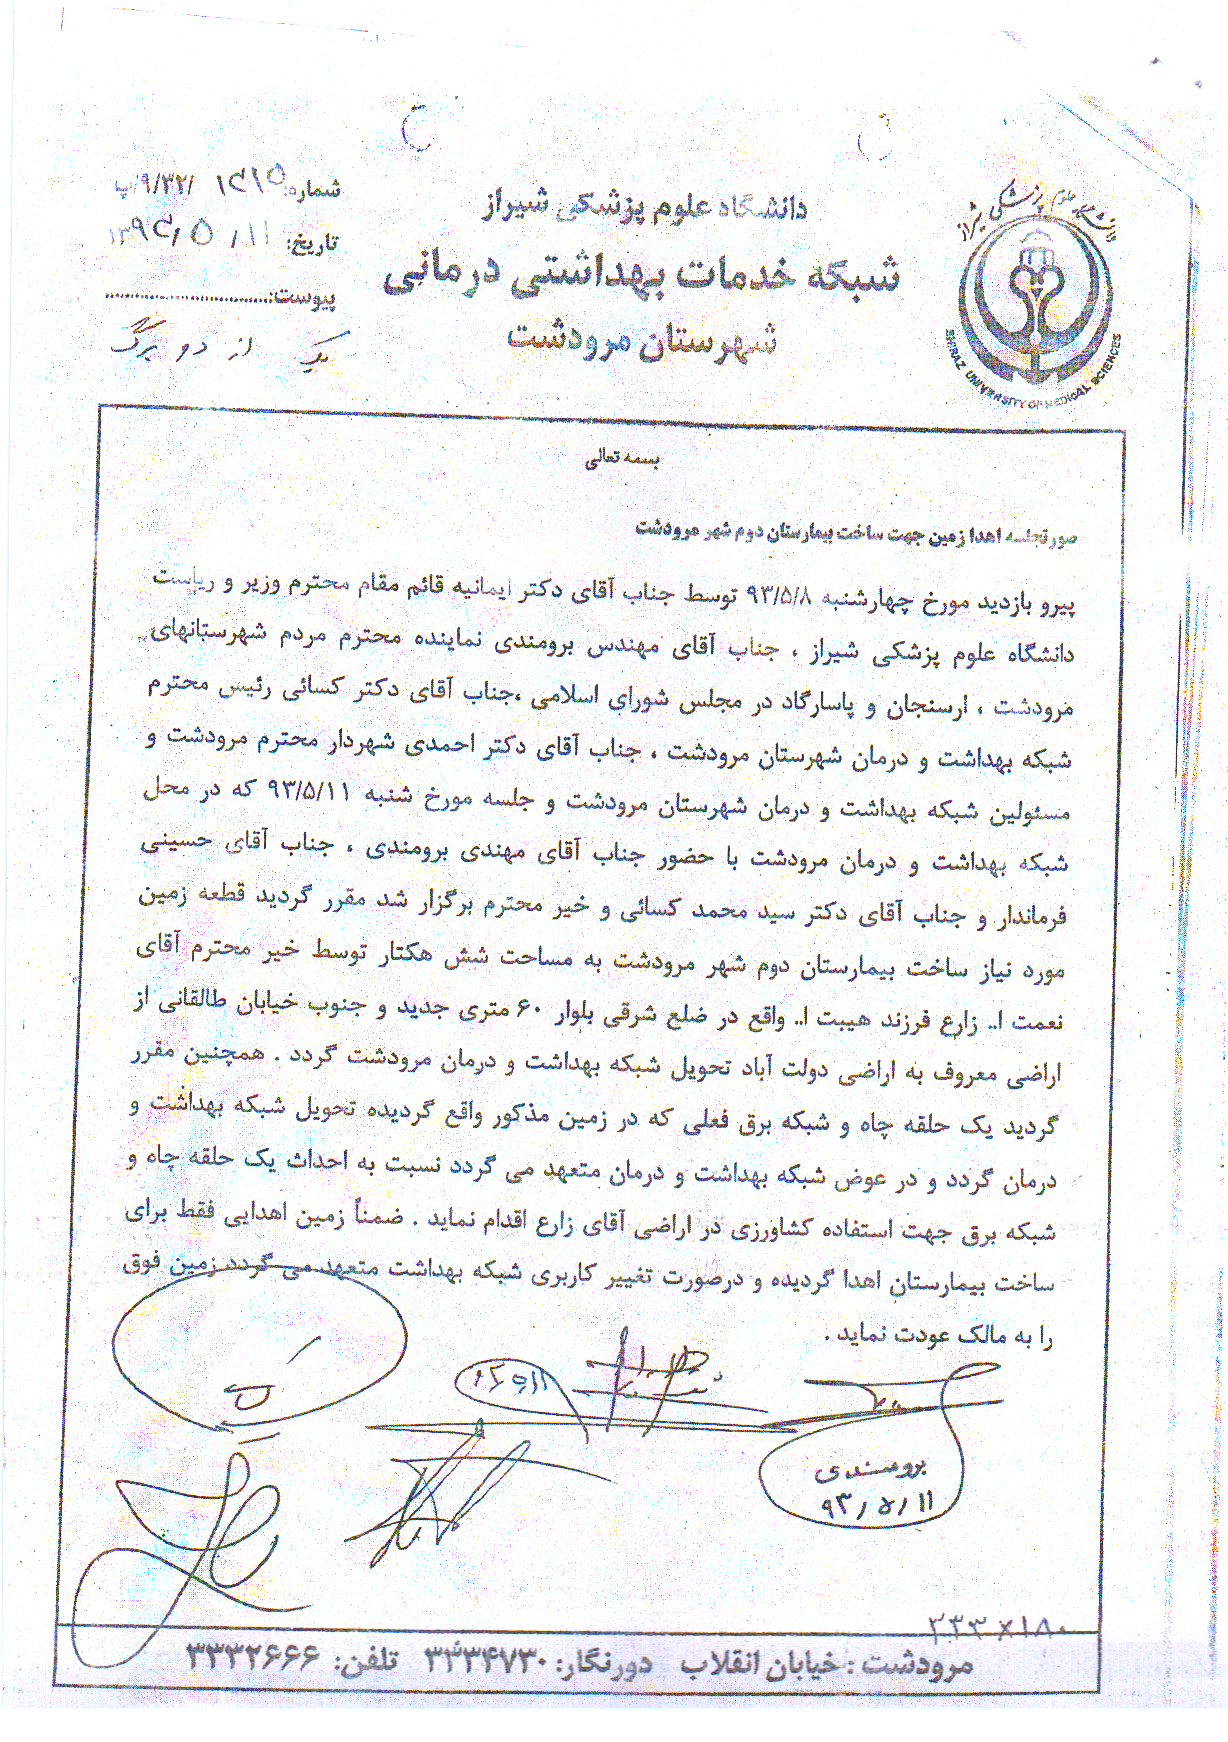 دانشگاه علوم پزشکی شیراز
SHIRAZ UNIVERSITY OF MEDICAL SCIENCES
دانشگاه علوم پزشکی شیراز
شبکه خدمات بهداشتی درمانی
شهرستان مرودشت
شماره:
تاریخ: ۱۳۹۳/۵/۱۱
پیوست:
یک از دو برگ
بسمه تعالی
صورتجلسه اهدا زمین جهت ساخت بیمارستان دوم شهر مرودشت
پیرو بازدید مورخ چهارشنبه ۹۳/۵/۸ توسط جناب آقای دکتر ایمانیه قائم مقام محترم وزیر و ریاست
دانشگاه علوم پزشکی شیراز ، جناب آقای مهندس برومندی نماینده محترم مردم شهرستانهای
مرودشت ، ارسنجان و پاسارگاد در مجلس شورای اسلامی ،جناب آقای دکتر کسائی رئیس محترم
شبکه بهداشت و درمان شهرستان مرودشت ، جناب آقای دکتر احمدی شهردار محترم مرودشت و
مسئولین شبکه بهداشت و درمان شهرستان مرودشت و جلسه مورخ شنبه ۹۳/۵/۱۱ که در محل
شبکه بهداشت و درمان مرودشت با حضور جناب آقای مهندی برومندی ، جناب آقای حسینی
فرماندار و جناب آقای دکتر سید محمد کسائی و خیر محترم برگزار شد مقرر گردید قطعه زمین
مورد نیاز ساخت بیمارستان دوم شهر مرودشت به مساحت شش هکتار توسط خیر محترم آقای
نعمت ا.. زارع فرزند هیبت ا.. واقع در ضلع شرقی بلوار ۶۰ متری جدید و جنوب خیابان طالقانی از
اراضی معروف به اراضی دولت آباد تحویل شبکه بهداشت و درمان مرودشت گردد . همچنین مقرر
گردید یک حلقه چاه و شبکه برق فعلی که در زمین مذکور واقع گردیده تحویل شبکه بهداشت و
درمان گردد و در عوض شبکه بهداشت و درمان متعهد می گردد نسبت به احداث یک حلقه چاه و
شبکه برق جهت استفاده کشاورزی در اراضی آقای زارع اقدام نماید . ضمناً زمین اهدایی فقط برای
ساخت بیمارستان اهدا گردیده و درصورت تغییر کاربری شبکه بهداشت متعهد می گردد زمین فوق
را به مالک عودت نماید .
برومندی
۹۳/۵/۱۱
مرودشت : خیابان انقلاب دورنگار: ۳۳۳۴۷۳۰ تلفن: ۳۳۳۲۶۶۶